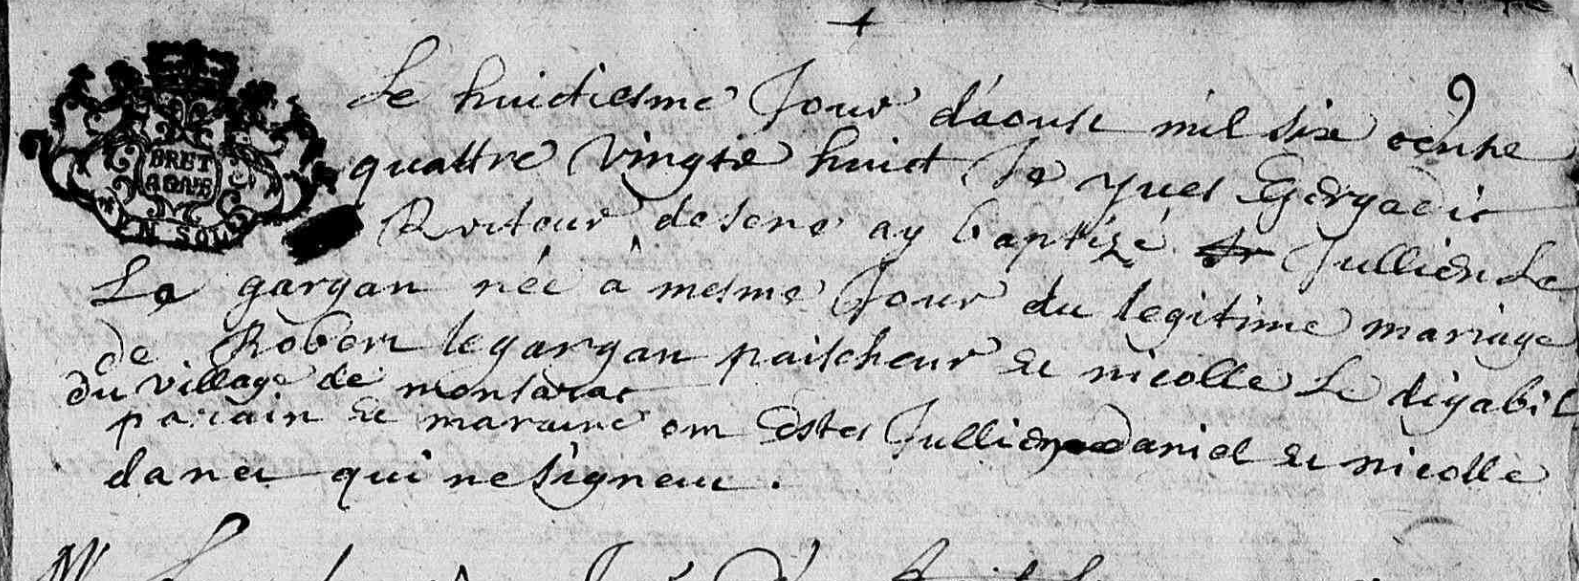 BRET
AGNE
EN SOLS
Le huictiesme Jour d'aoust mil six cents
quattre vingts huict Je yves
Recteur de sene ay baptizé Jullien Le
Le gargan née à mesme Jour du legitime mariage
de Robert le gargan paischeur et nicolle Le
du village de monsarac
parain et maraine ont Estes Jullien Daniel et nicolle
danet qui ne signent.